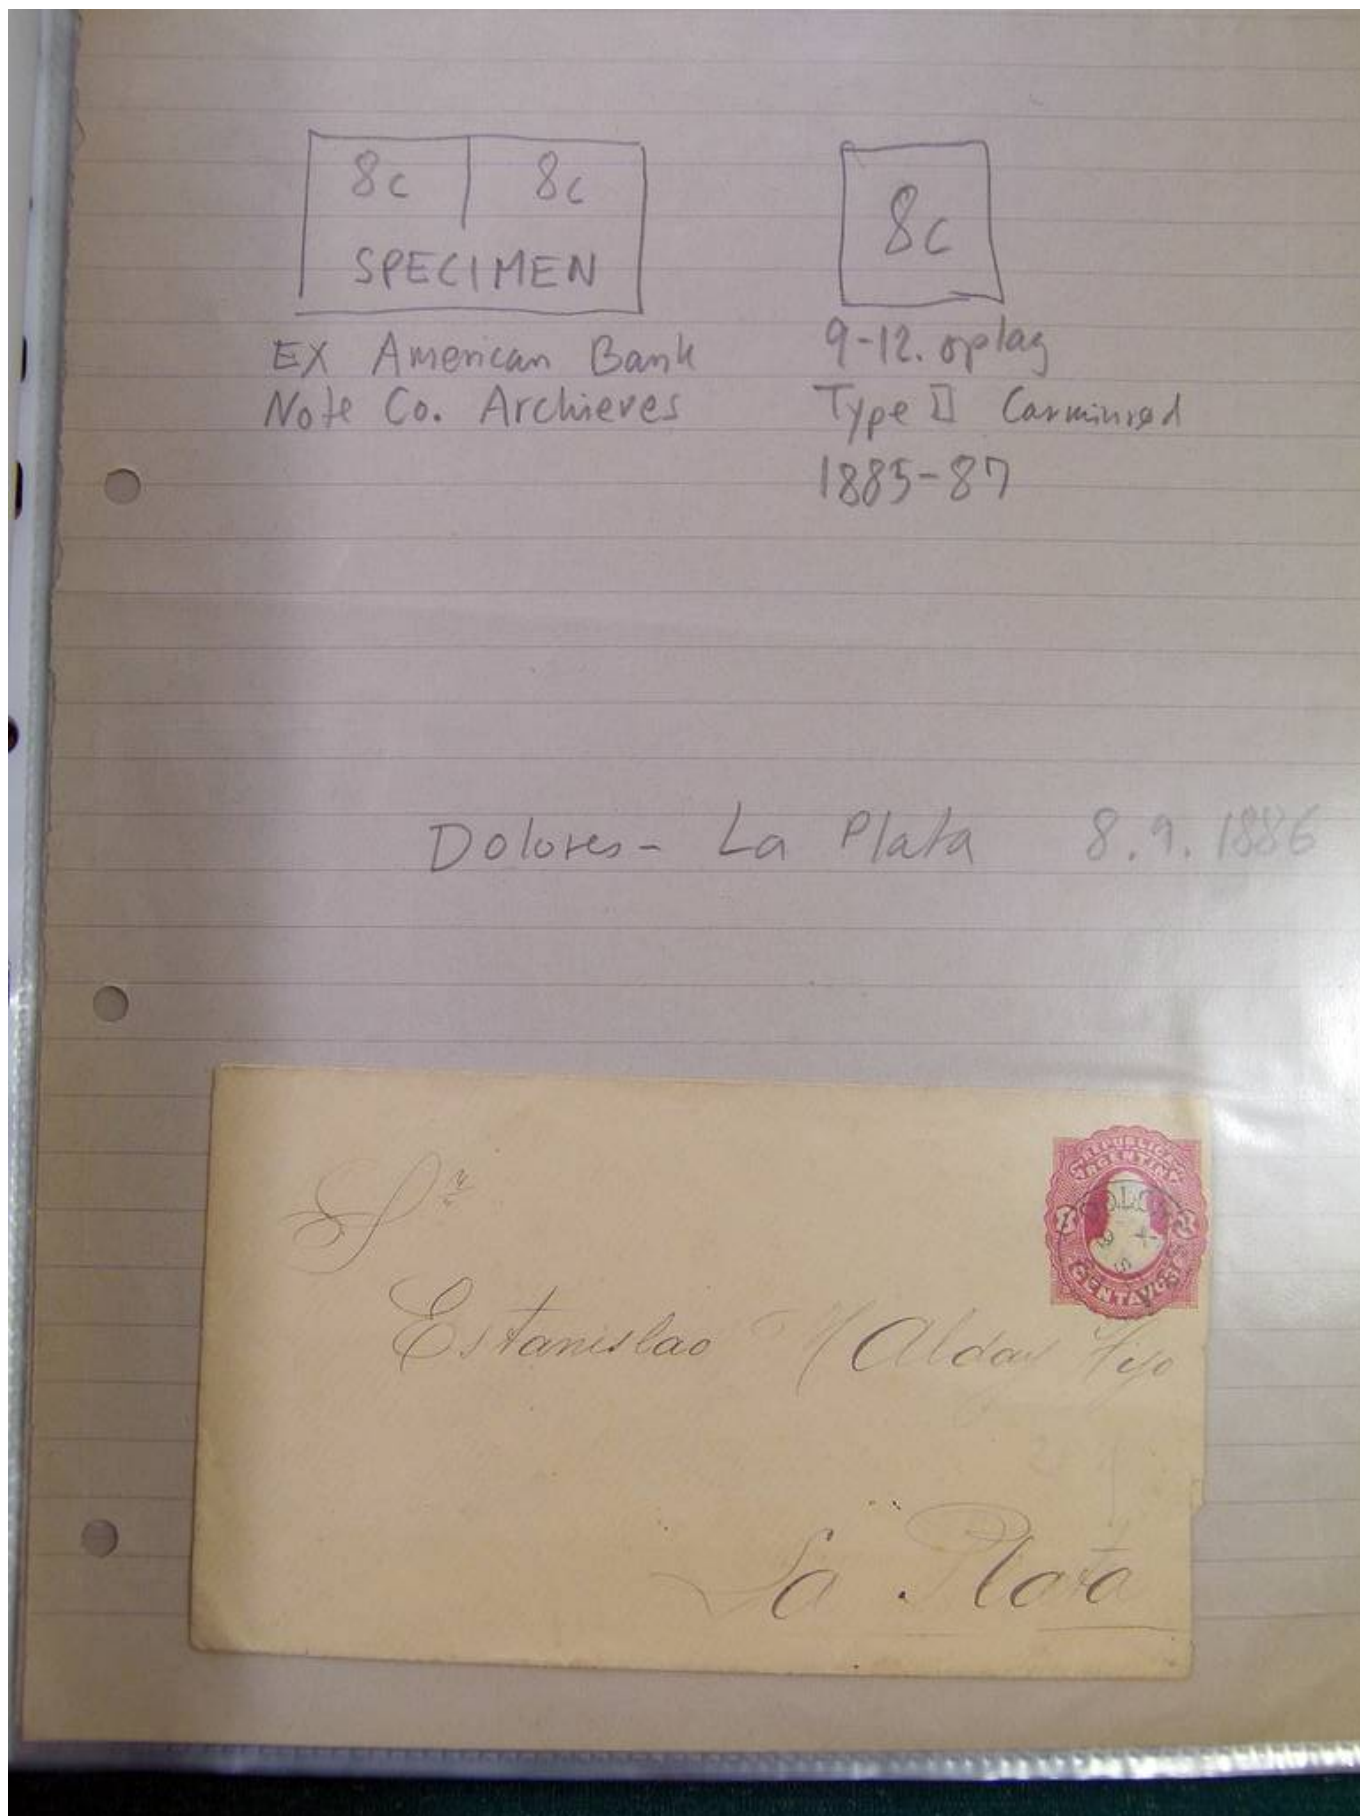 8c 8c
SPECIMEN
8c
EX American Bank
Note Co. Archieves
9-12. oplag
Type II Carminrød
1885-87
Dolores - La Plata 8.9.1886
REPUBLICA
ARGENTINA
CENTAVOS
Sr
Estanislao Alday Hijo
La Plata